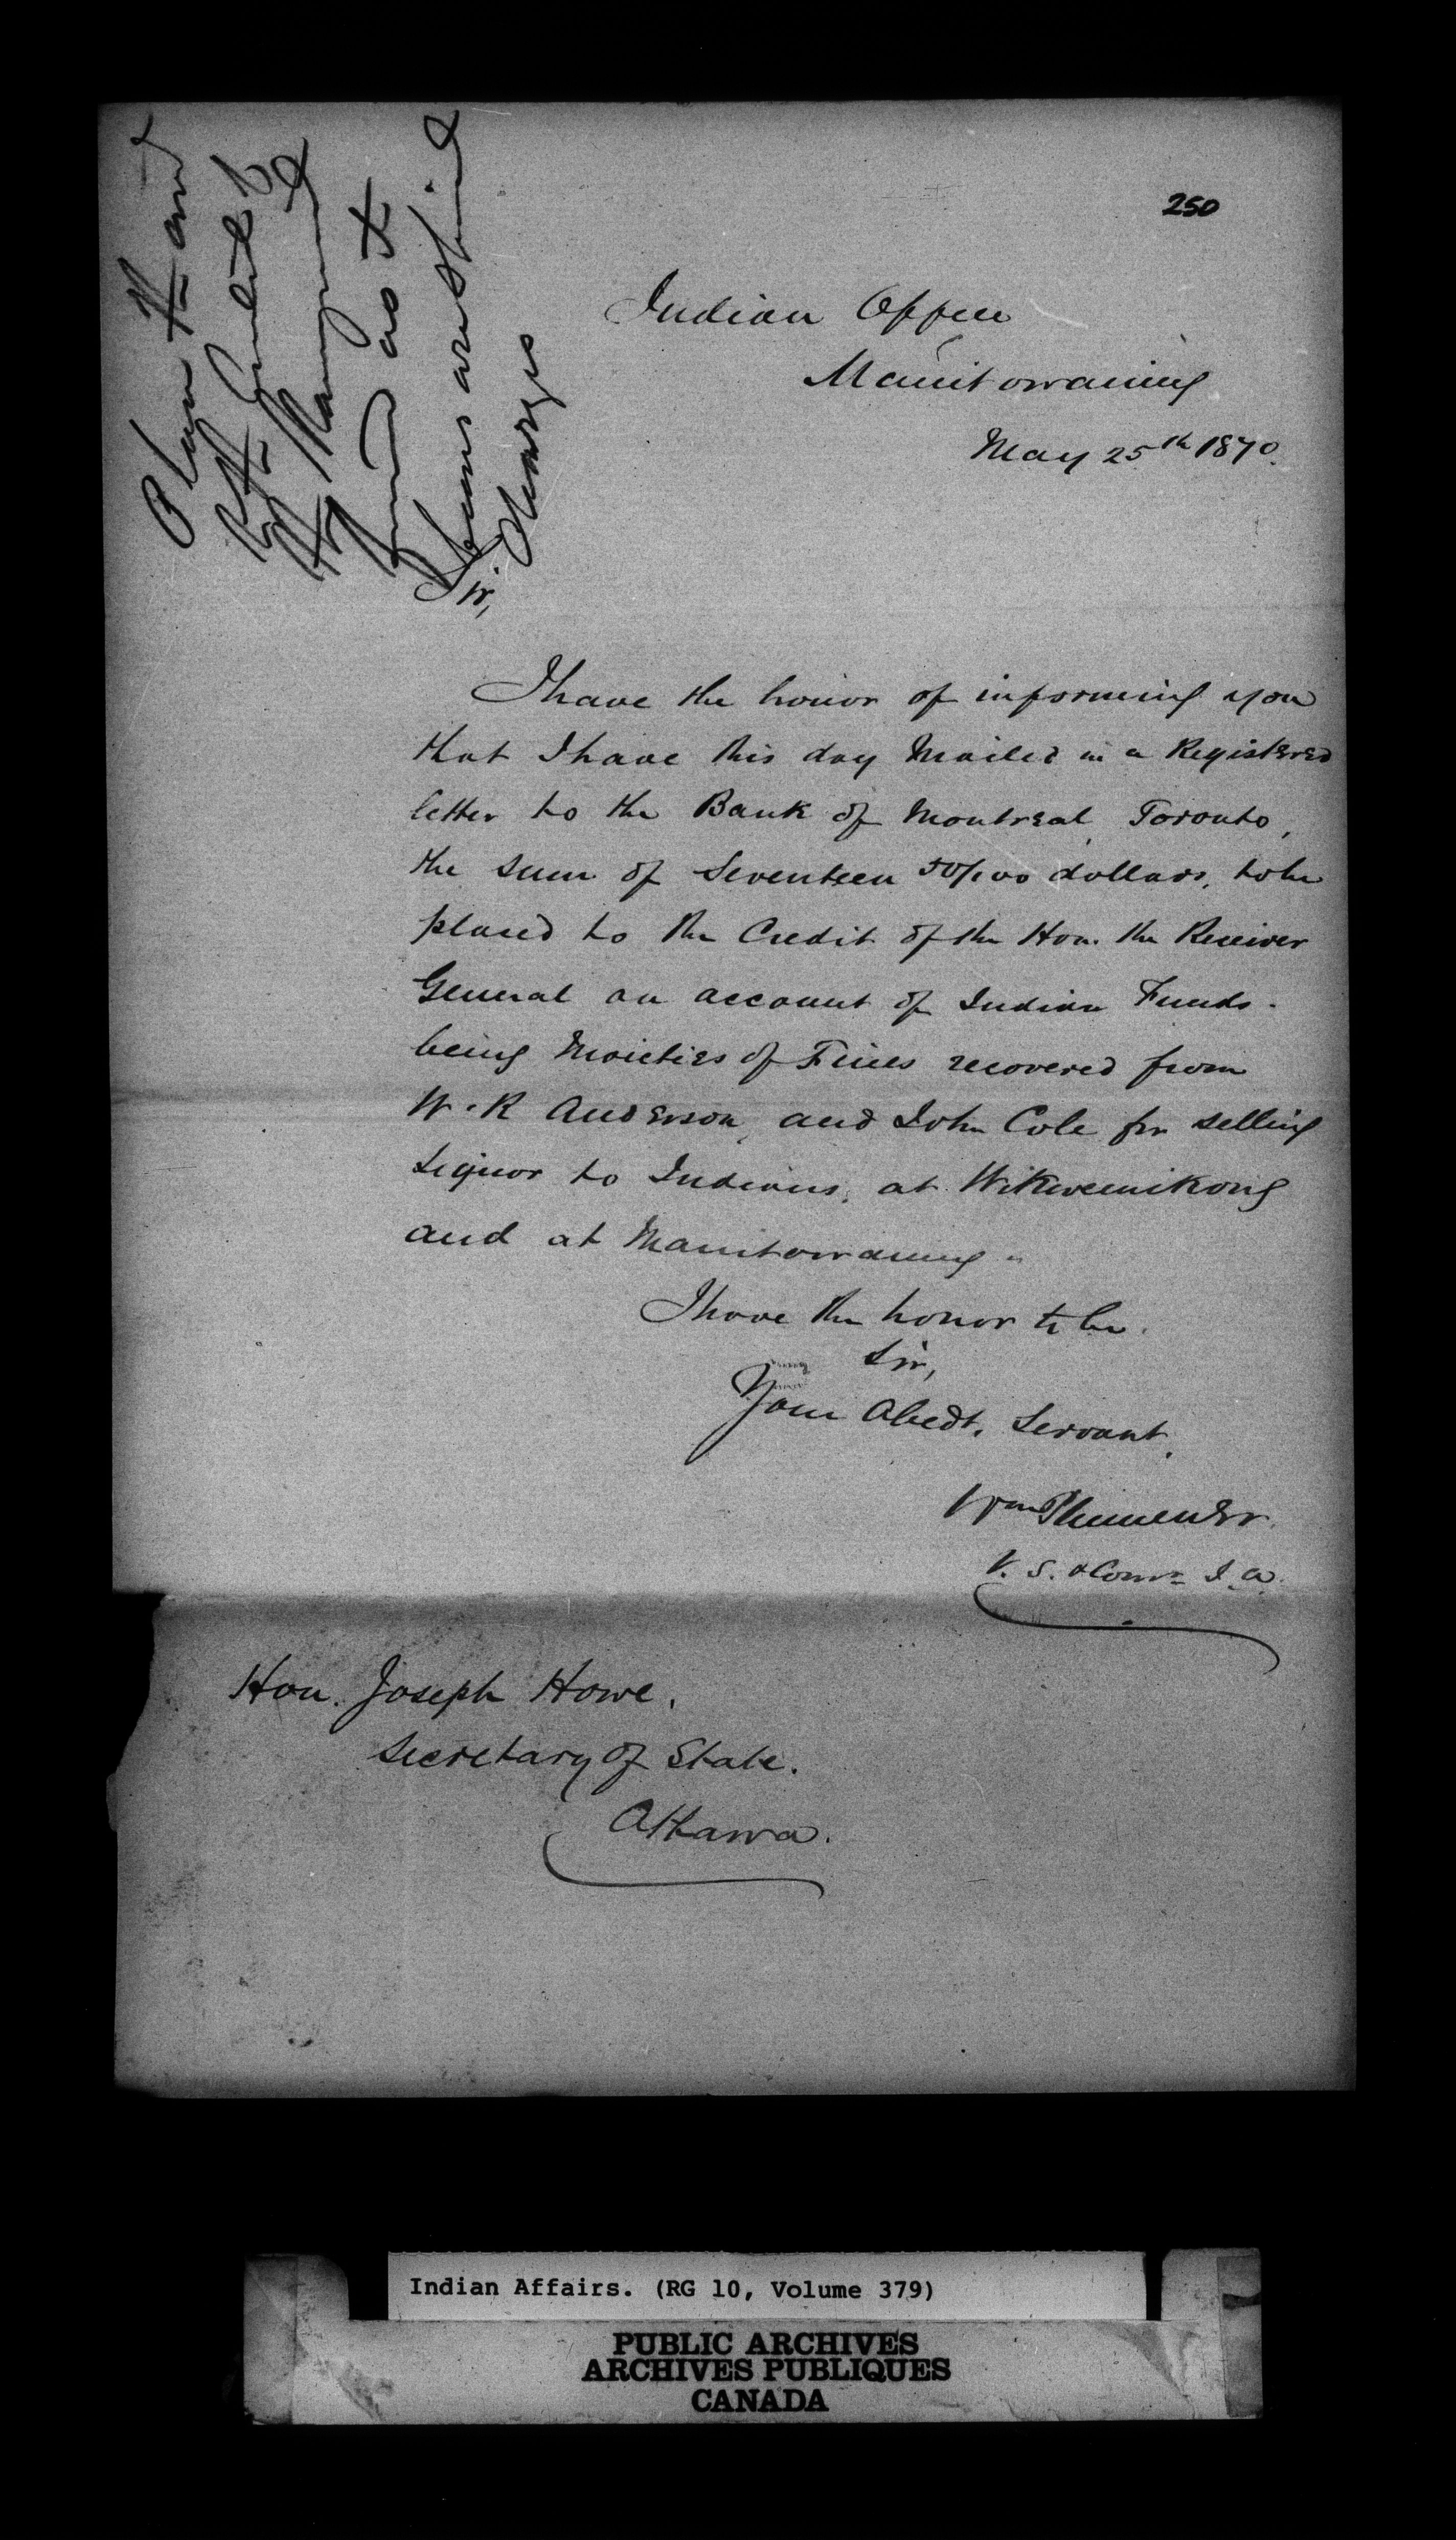 250
Indian Office
Manitowaning
May 25th 1870.
Sir,
I have the honor of informing you
that I have this day Mailed in a Registered
letter to the Bank of Montreal, Toronto,
the sum of Seventeen 50/100 dollars, to be
placed to the Credit of the Hon. the Receiver
General on account of Indian Funds.
being Moieties of Fines recovered from
W. R Anderson, and John Cole for selling
Liquor to Indians, at Wikwemikong
and at Manitowaning.
I have the honor to be.
Sir,
Your Obedt. Servant,
Wm Plummer.
V. S. & Comr I. A.
Hon. Joseph Howe,
Secretary of State.
Ottawa.
Indian Affairs. (RG 10, Volume 379)
PUBLIC ARCHIVES
ARCHIVES PUBLIQUES
CANADA